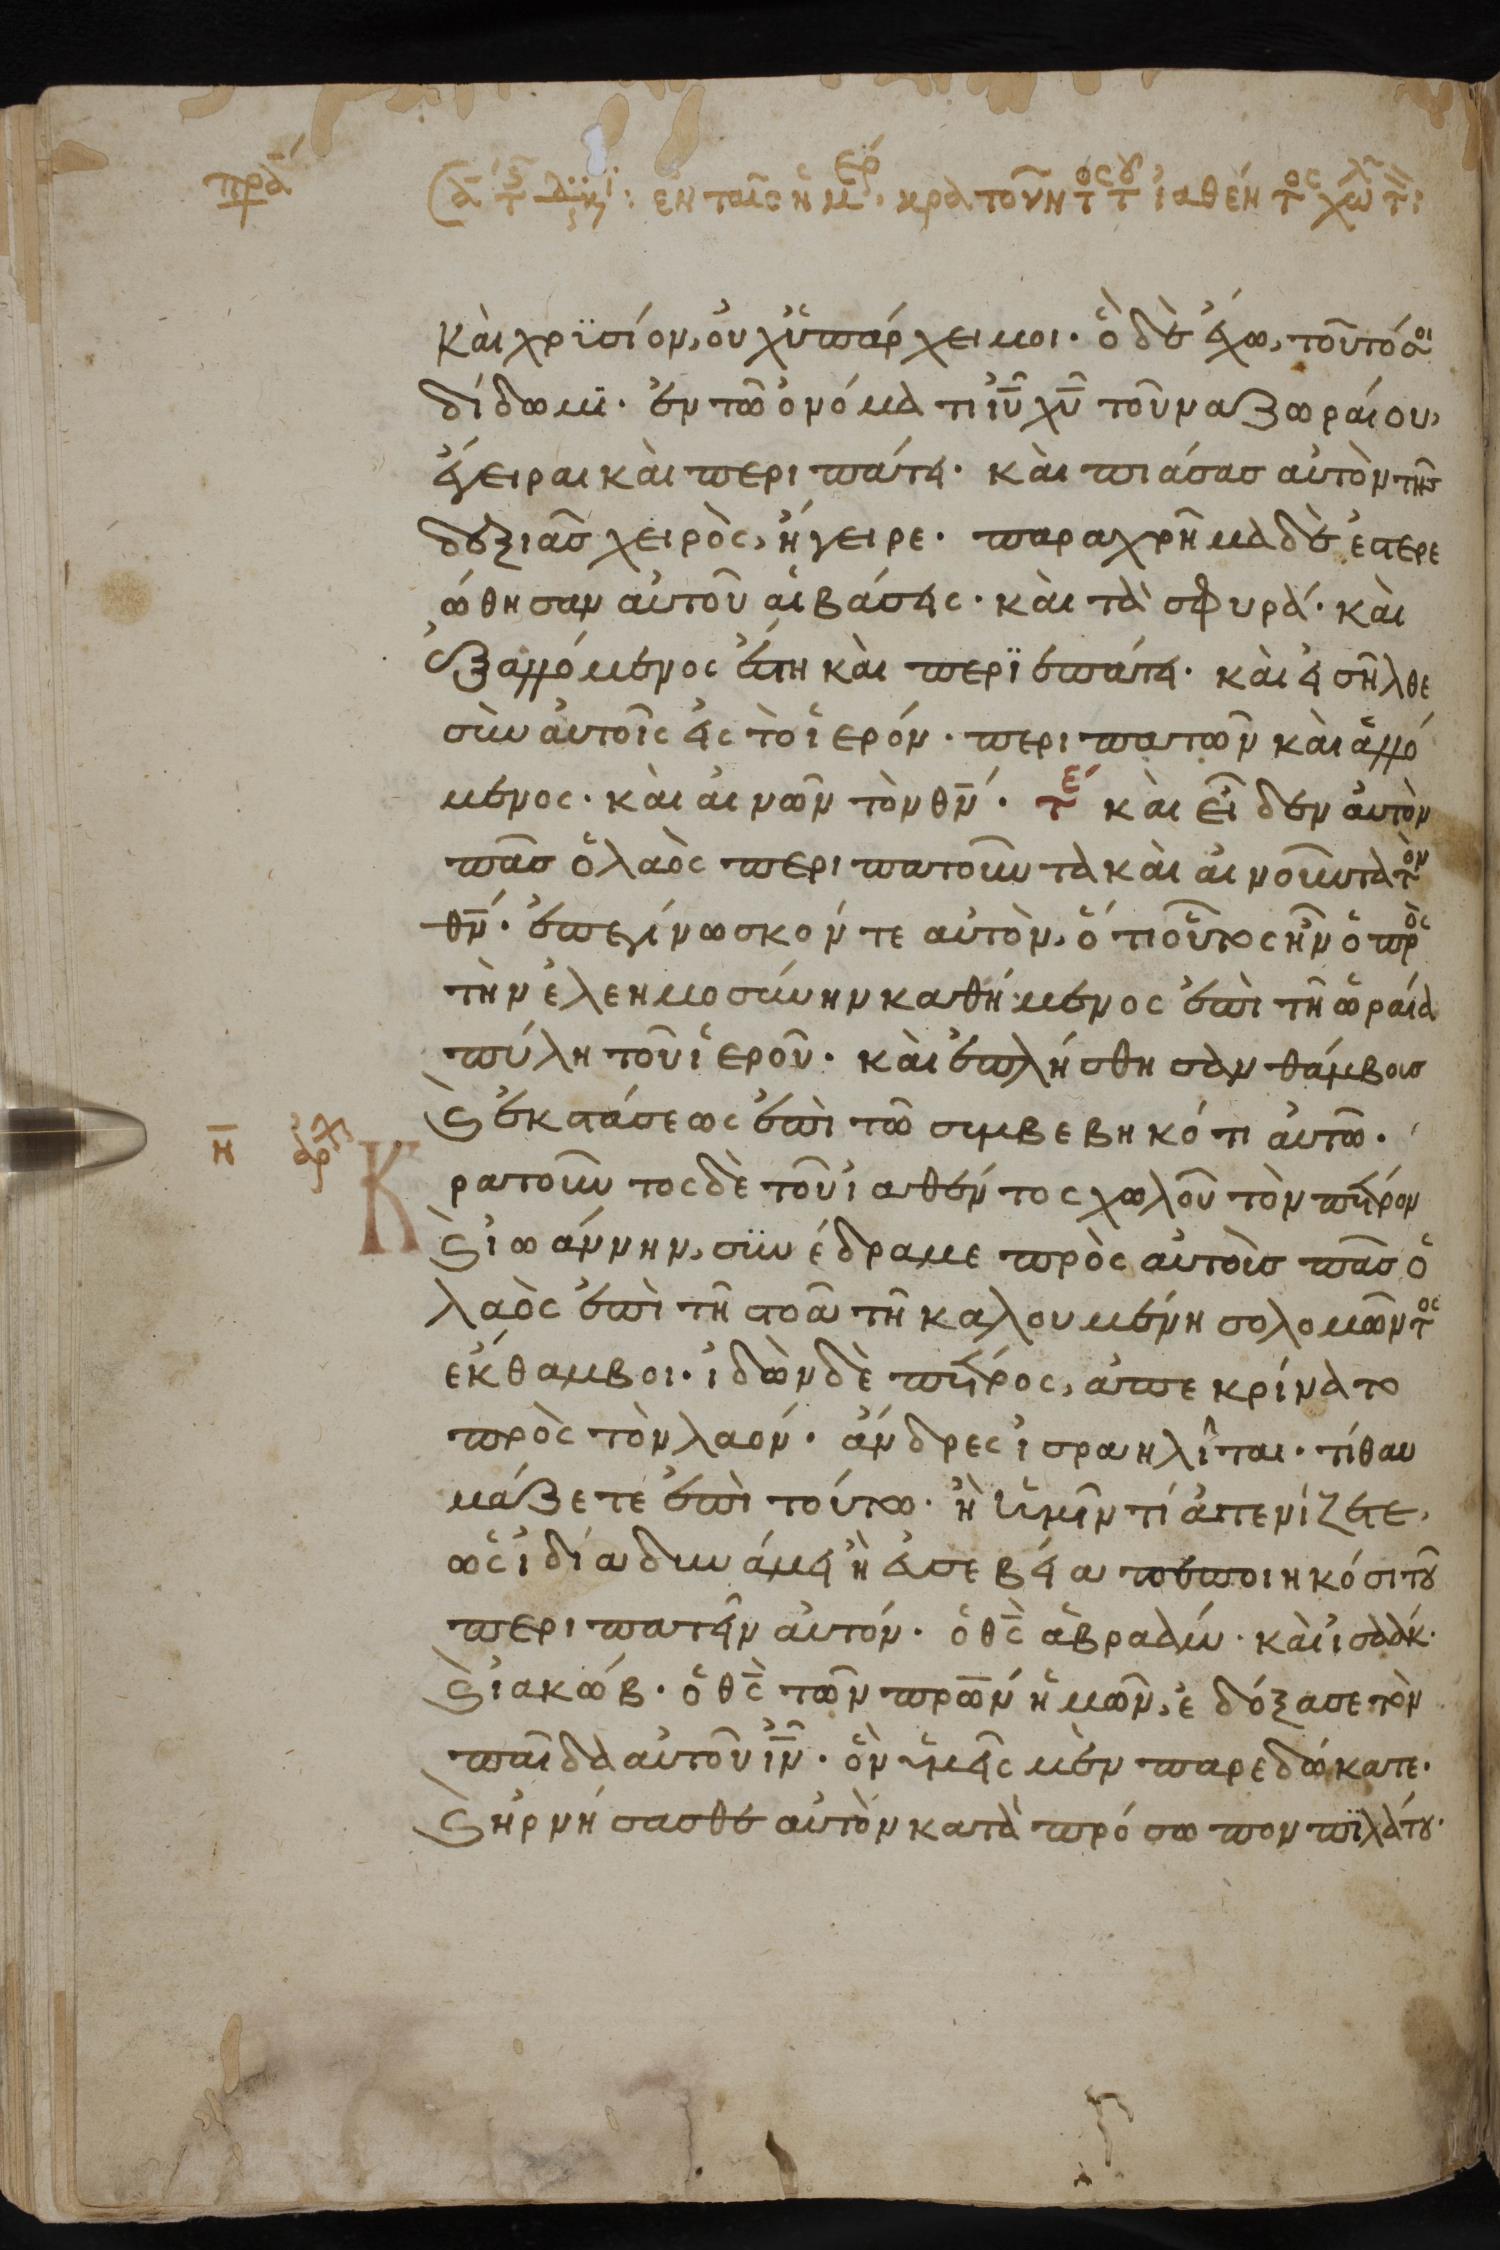 πρα
ἐν ταῖς ἡμερ. κρατοῦντος τοῦ ἰαθέντος χωλ
καὶ χρϊσίον, οὐχ ὑπάρχει μοι· ὃ δὲ ἔχω, τοῦτό σοι
δίδωμϊ· ἐν τῶ ὀνόματι ἰῦ χῦ τοῦ ναζωραίου,
ἔγειραι καὶ περιπάτει· καὶ πιάσας αὐτὸν τῆς
δεξιᾶς χειρὸς, ἤγειρε· παραχρῆμα δὲ ἐστερε
ώθησαν αὐτοῦ αἱ βάσεις· καὶ τὰ σφυρά· καὶ
ἐξαλλόμενος ἔστη καὶ περϊεπάτει· καὶ εἰσῆλθε
σὺν αὐτοῖς εἰς τὸ ἱερόν· περιπατῶν καὶ ἁλλό
μενος· καὶ αἰνῶν τὸν θν· τε καὶ εἶδεν αὐτὸν
πᾶς ὁ λαὸς περιπατοῦντα καὶ αἰνοῦντα τὸν
θν· ἐπεγίνωσκόν τε αὐτὸν, ὅτι οὗτος ἦν ὁ πρὸς
τὴν ἐλεημοσύνην καθήμενος ἐπὶ τῆ ὡραία
πύλη τοῦ ἱεροῦ· καὶ ἐπλήσθησαν θάμβους
καὶ ἐκστάσεως ἐπὶ τῶ συμβεβηκότι αὐτῶ·
η ἀρχ Κ
ρατοῦντος δὲ τοῦ ἰαθέντος χωλοῦ τὸν πέτρον
καὶ ἰωάννην, σϋνέδραμε πρὸς αὐτοὺς πᾶς ὁ
λαὸς ἐπὶ τῆ στοᾶ τῆ καλουμένη σολομῶντος
ἔκθαμβοι· ἰδὼν δὲ πέτρος, ἀπεκρίνατο
πρὸς τὸν λαόν· ἄνδρες ἰσραηλῖται· τί θαυ
μάζετε ἐπὶ τούτω· ἢ ἡμῖν τί ἀτενίζετε,
ὡς ἰδία δυνάμει ἢ εὐσεβεία πεποιηκόσι τοῦ
περιπατεῖν αὐτόν· ὁ θς ἀβραάμ· καὶ ἰσαάκ·
καὶ ἰακώβ· ὁ θς τῶν πρων ἡμῶν, ἐδόξασε τὸν
παῖδα αὐτοῦ ἰν· ὃν ὑμεῖς μὲν παρεδώκατε·
καὶ ἠρνήσασθε αὐτὸν κατὰ πρόσωπον πϊλάτου·